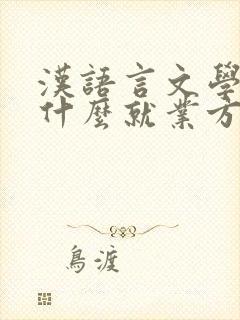 漢語言文學
什麼就業方
鳥渡